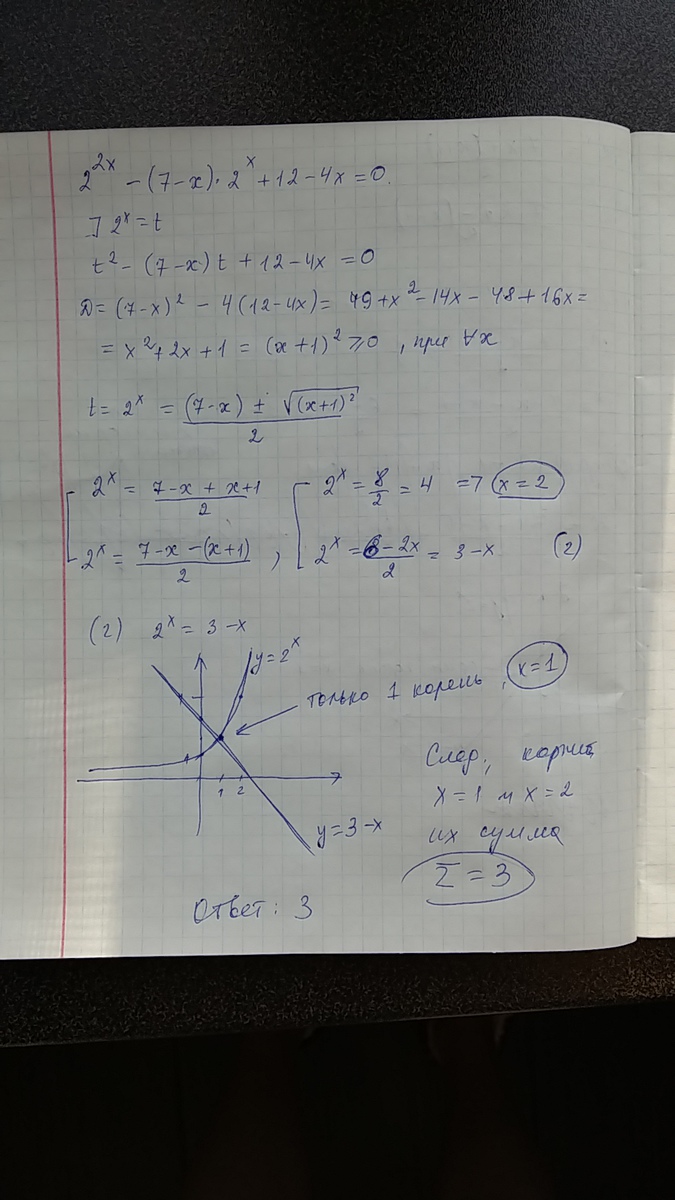 2^{2x} - (7-x)·2^x + 12 - 4x = 0.
] 2^x = t
t² - (7-x)t + 12 - 4x = 0
D = (7-x)² - 4(12-4x) = 49 + x² - 14x - 48 + 16x =
= x² + 2x + 1 = (x+1)² ⩾ 0, при ∀x
t = 2^x = ((7-x) ± √((x+1)²))/2
[ 2^x = (7-x+x+1)/2 [ 2^x = 8/2 = 4 => x = 2
2^x = (7-x-(x+1))/2 ; 2^x = (6-2x)/2 = 3-x (2)
(2) 2^x = 3-x
y=2^x
только 1 корень, x=1
1 2
y=3-x
След, корни
x=1 и x=2
их сумма
Σ = 3
Ответ: 3